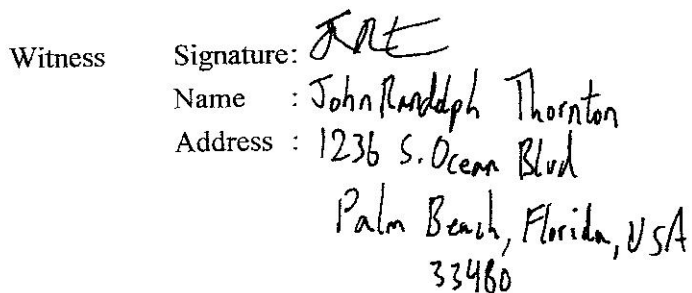 Witness Signature:
Name : John Randolph Thornton
Address : 1236 S. Ocean Blvd
Palm Beach, Florida, USA
33480